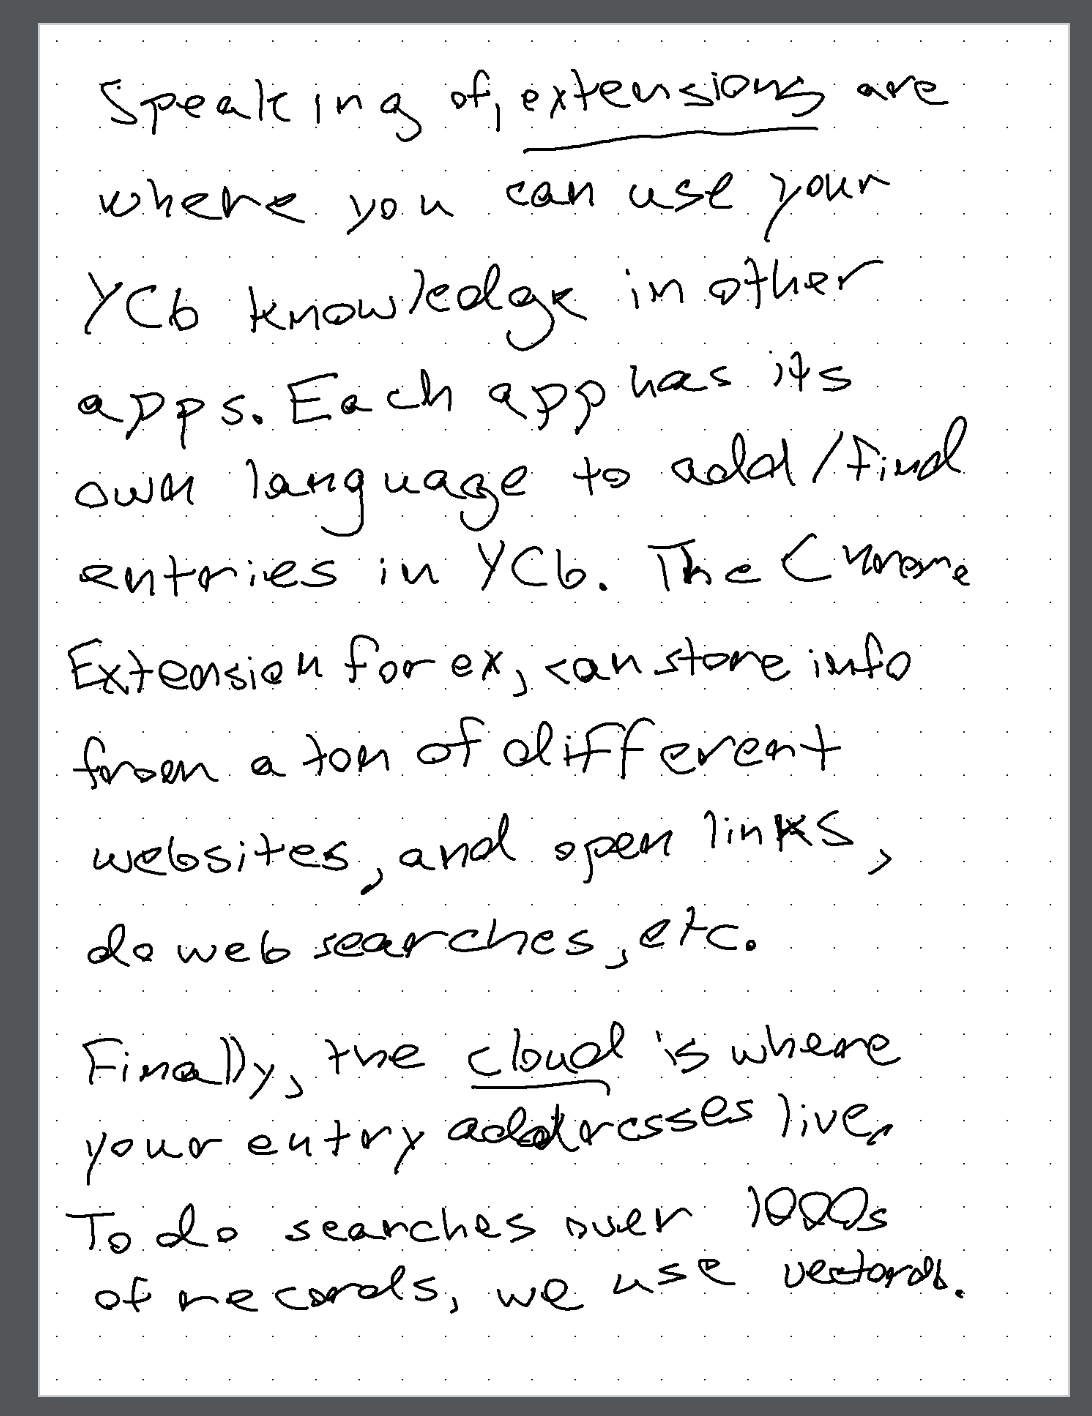 Speaking of, extensions are
where you can use your
YCb knowledge in other
apps. Each app has its
own language to add/find
entries in YCb. The Chrome
Extension for ex, can store info
from a ton of different
websites, and open links,
do web searches, etc.
Finally, the cloud is where
your entry addresses live.
To do searches over 1000s
of records, we use vectordb.